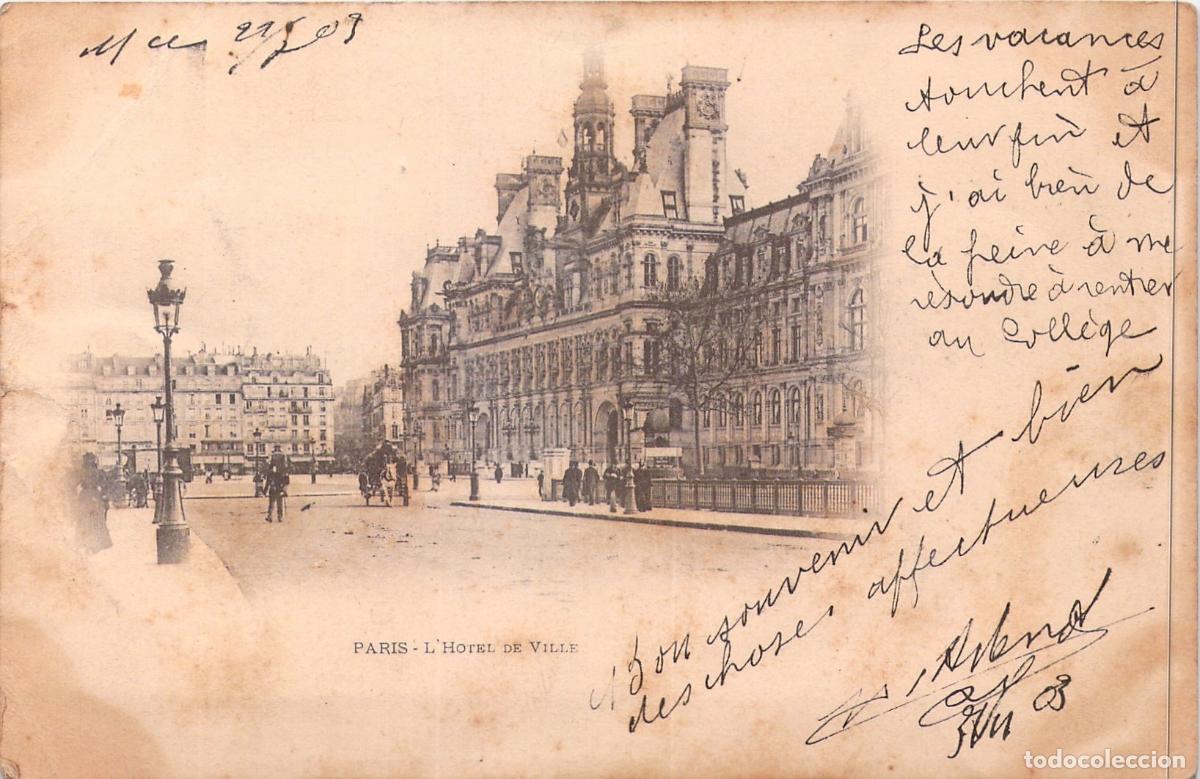 22/5 03
Les vacances
touchent à
leur fin et
j'ai bien de
la peine à me
résoudre à rentrer
au Collège
Bon souvenir et bien
des choses affectueuses
03
PARIS - L'HOTEL DE VILLE
todocoleccion